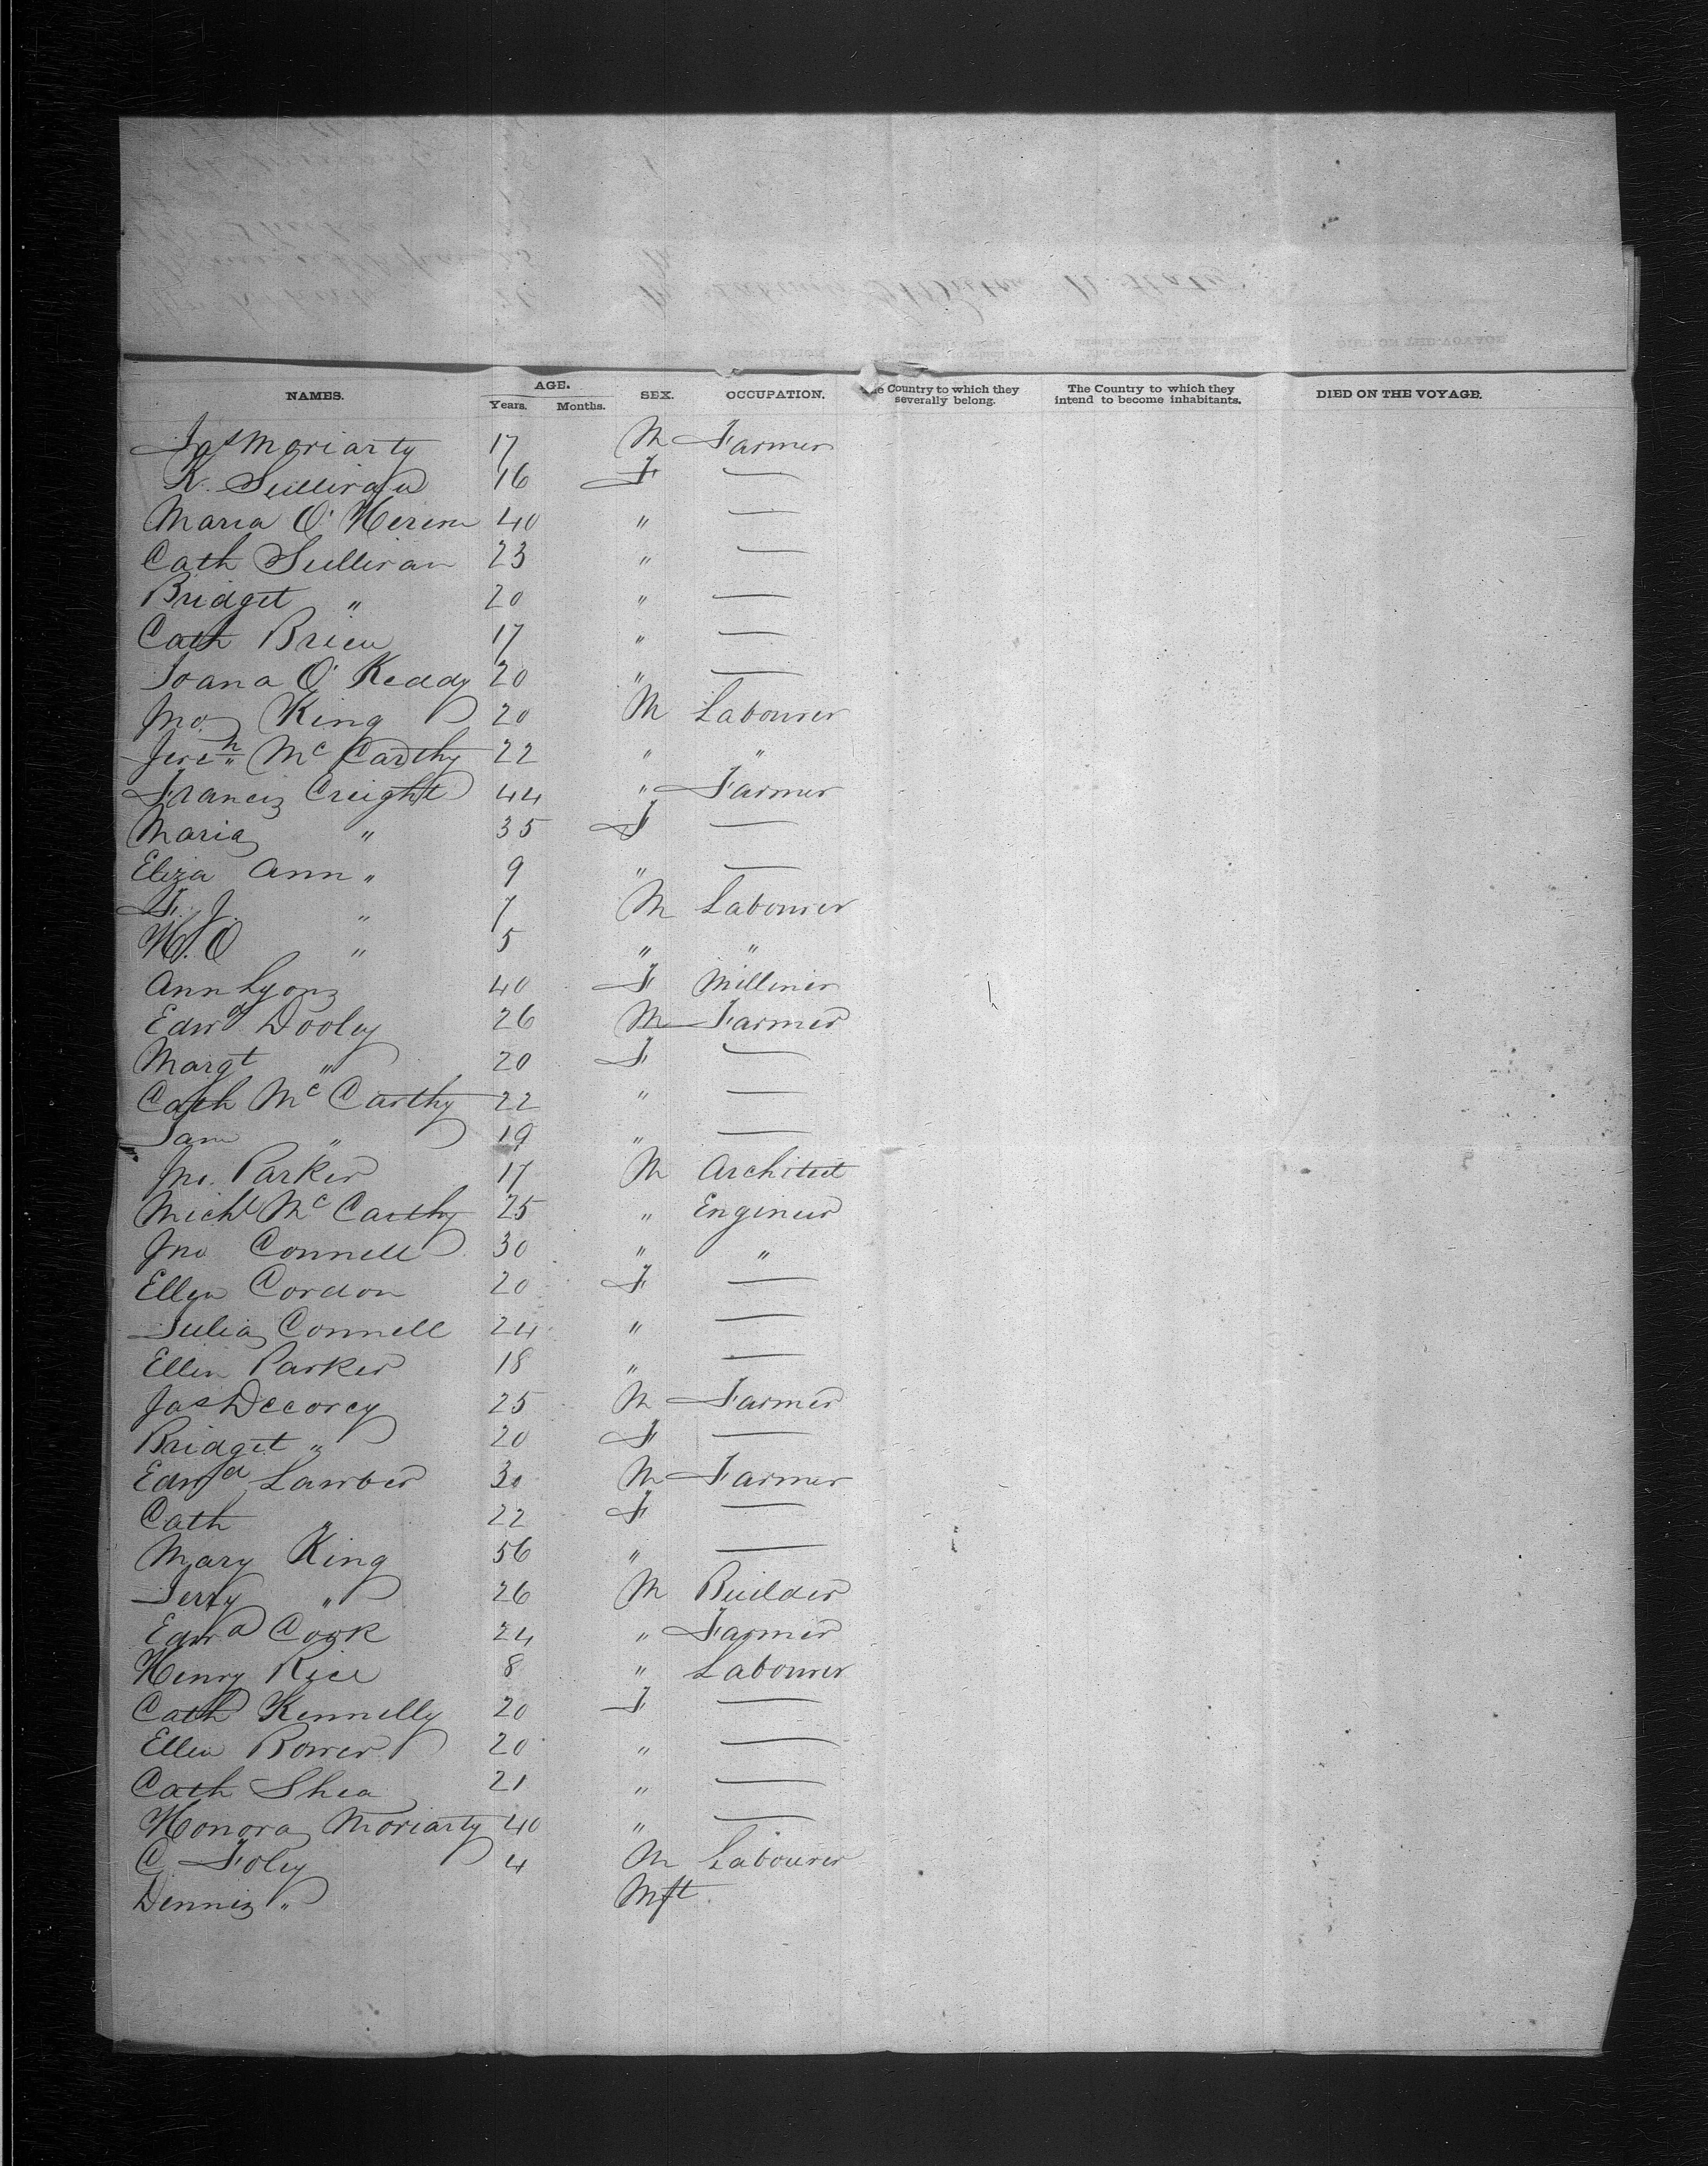 NAMES. AGE. SEX. OCCUPATION. The Country to which they severally belong. The Country to which they intend to become inhabitants. DIED ON THE VOYAGE.
Years. Months.
Jas Moriarty 17 M Farmer
K. Sullivan 16 F —
Maria O' 40 " —
Cath Sullivan 23 " —
Bridget " 20 " —
Cath Brien 17 " —
Joana O' Keady 20 " —
Jno King 20 M Labourer
Jereh McCarthy 22 " "
Francis Creight 44 " Farmer
Maria " 35 F —
Eliza Ann " 9 " —
F. J. " 7 M Labourer
W. O " 5 " "
Ann Lyons 40 F Milliner
Edwd Dooley 26 M Farmer
Margt " 20 F —
Cath McCarthy 22 " —
Jane " 19 " —
Jno. Parker 17 M Architect
Michl McCarthy 25 " Engineer
Jno Connell 30 " "
Ellen Cordon 20 F —
Julia Connell 24 " —
Ellen Parker 18 " —
Jas Decorcy 25 M Farmer
Bridget " 20 F —
Edwd Lawber 30 M Farmer
Cath " 22 F —
Mary King 56 " —
Jerry " 26 M Builder
Edwd Cook 24 " Farmer
Henry Rice 8 " Labourer
Cath Kennelly 20 F —
Ellen Bower 20 " —
Cath Shea 21 " —
Honora Moriarty 40 " —
C Foley 4 M Labourer
Dennis " Mft